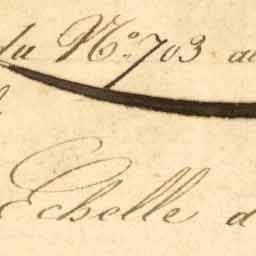 du N.o 703 au
Echelle d